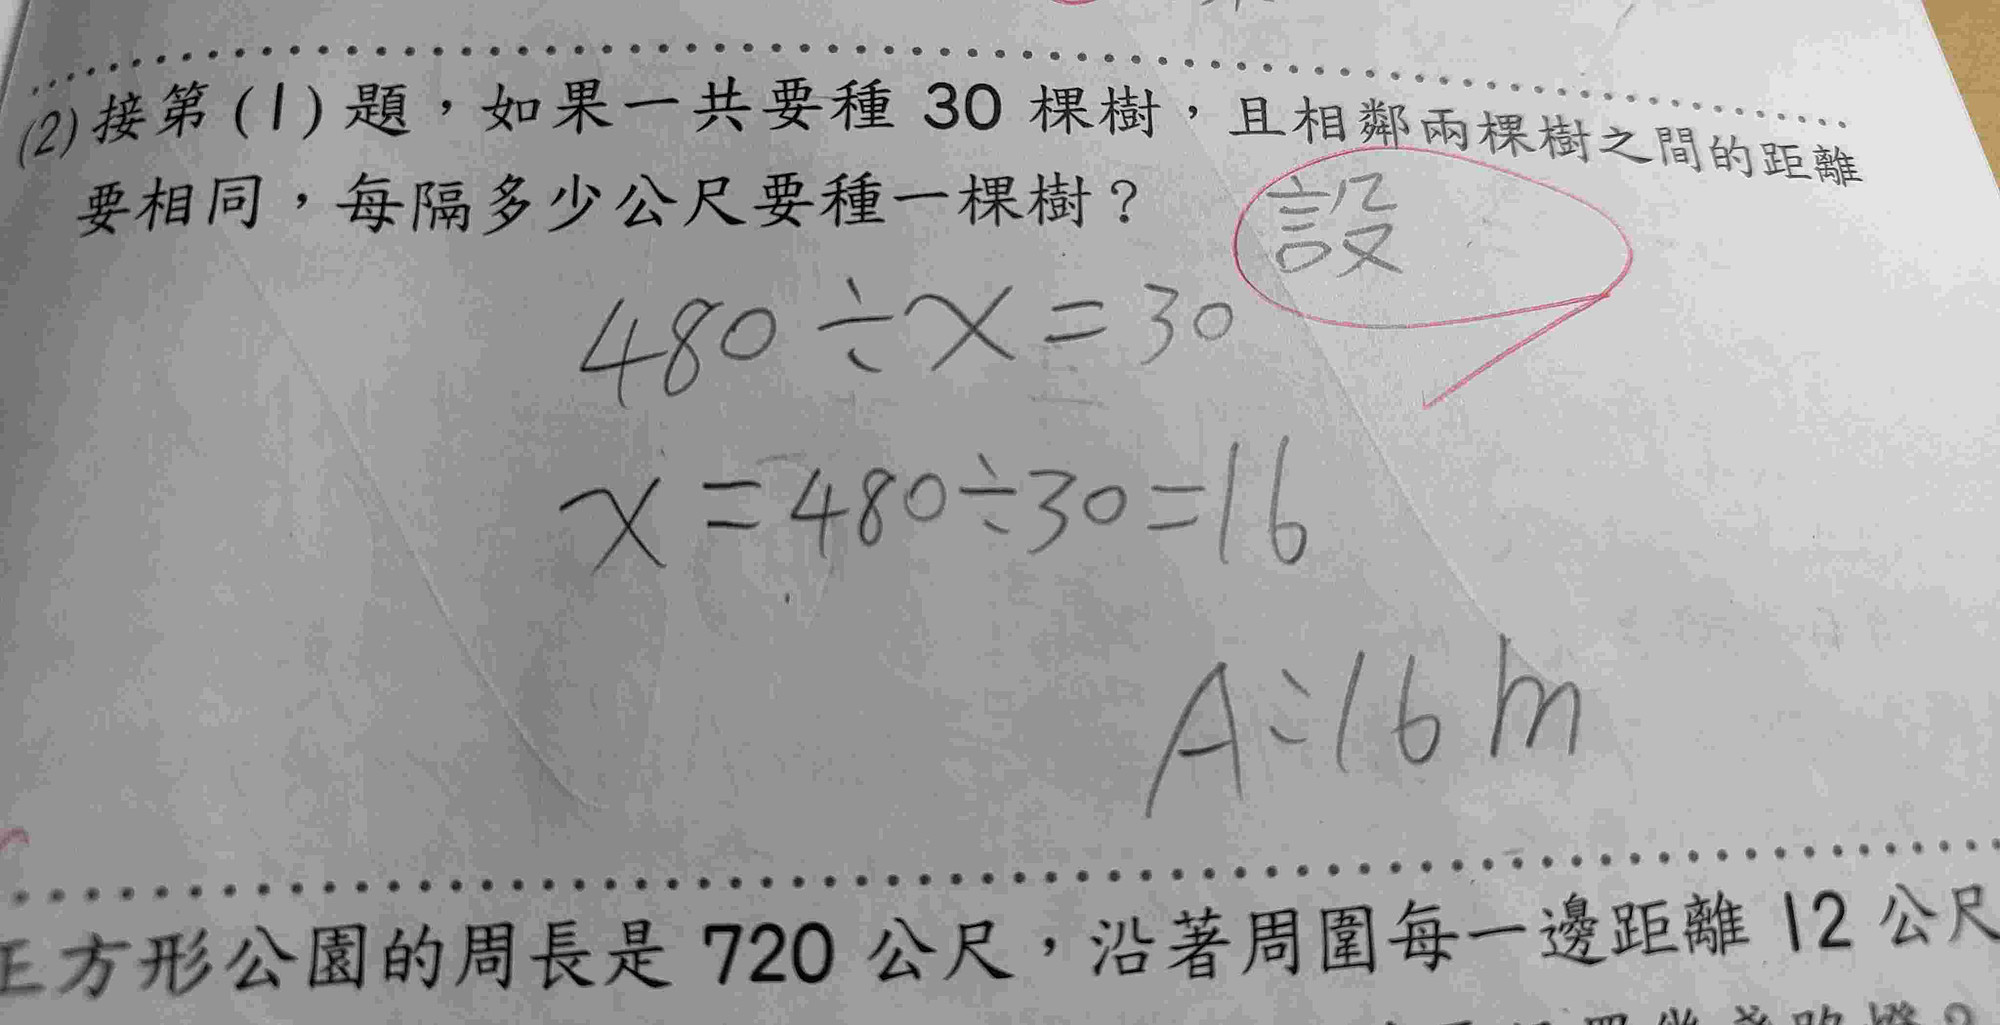 (2)接第(1)題，如果一共要種 30 棵樹，且相鄰兩棵樹之間的距離
要相同，每隔多少公尺要種一棵樹？
設
480÷x=30
x=480÷30=16
A:16m
正方形公園的周長是 720 公尺，沿著周圍每一邊距離 12 公尺